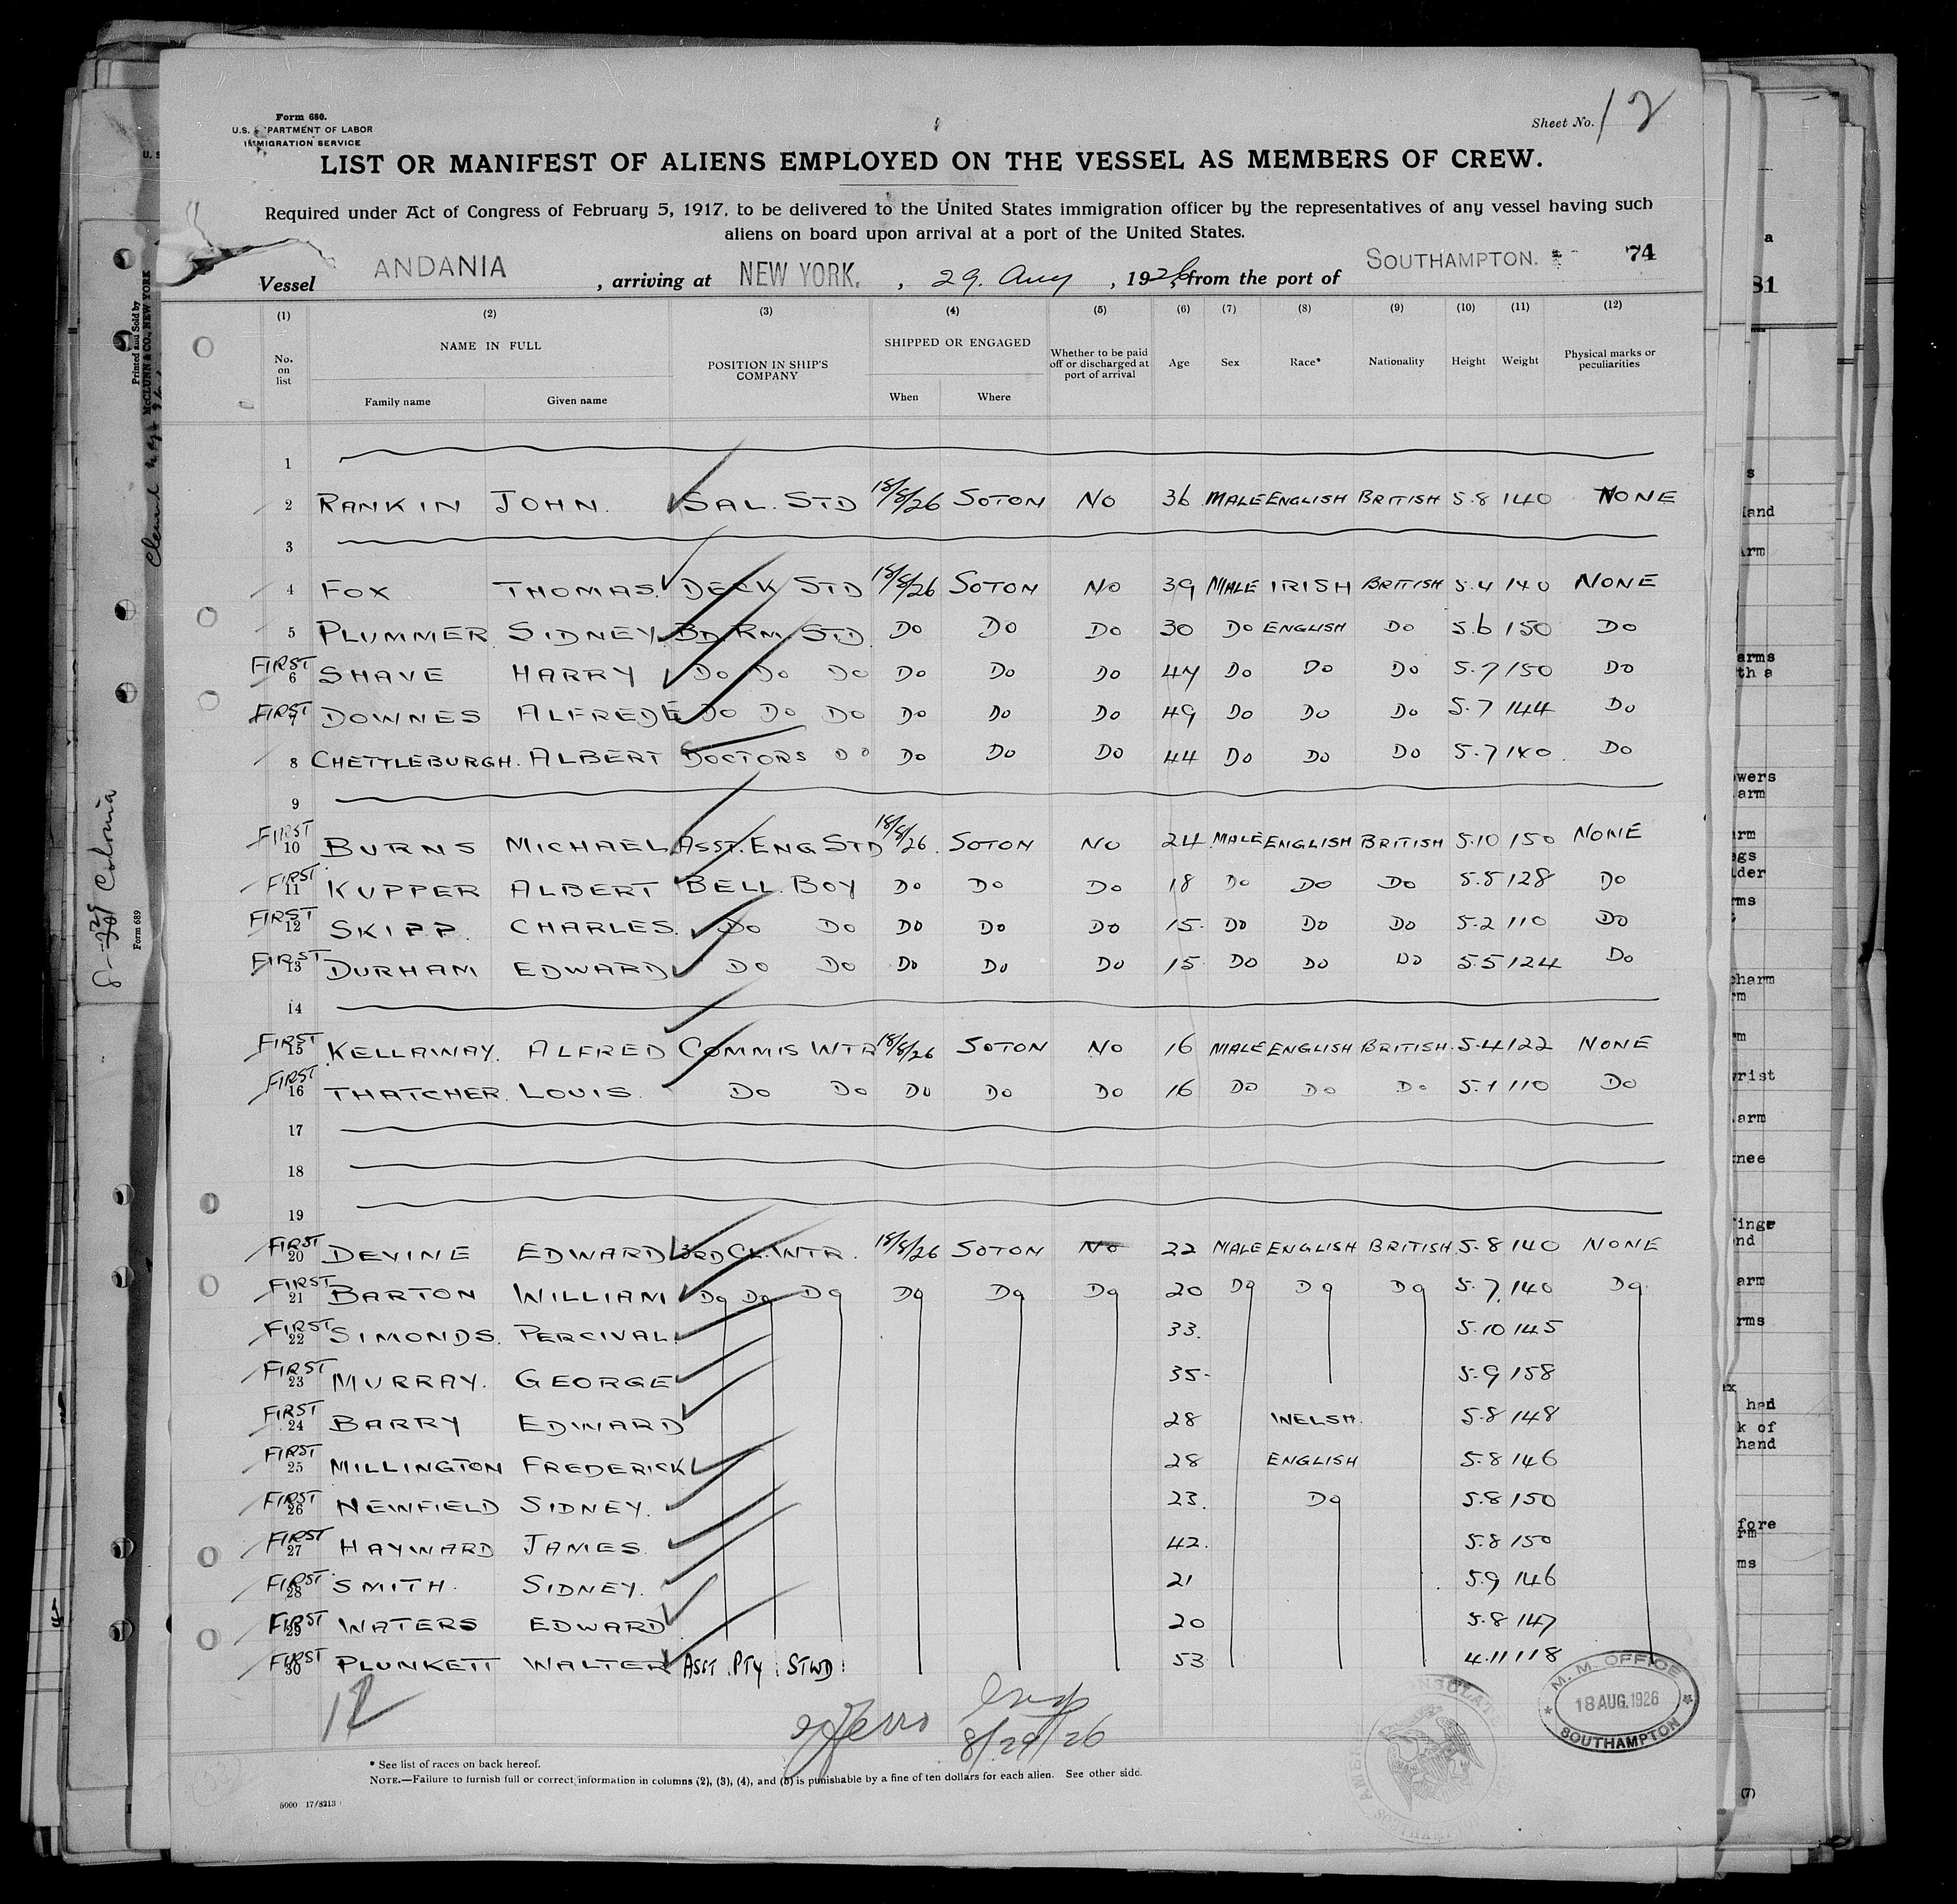 Form 680.
U.S. DEPARTMENT OF LABOR
IMMIGRATION SERVICE
Sheet No. 12
LIST OR MANIFEST OF ALIENS EMPLOYED ON THE VESSEL AS MEMBERS OF CREW.
Required under Act of Congress of February 5, 1917, to be delivered to the United States immigration officer by the representatives of any vessel having such
aliens on board upon arrival at a port of the United States.
Vessel ANDANIA , arriving at NEW YORK. , 29. Aug , 1926, from the port of SOUTHAMPTON. 74
(1) (2) (3) (4) (5) (6) (7) (8) (9) (10) (11) (12)
No. on list NAME IN FULL POSITION IN SHIP'S COMPANY SHIPPED OR ENGAGED Whether to be paid off or discharged at port of arrival Age Sex Race* Nationality Height Weight Physical marks or peculiarities
Family name Given name When Where
1
2 RANKIN JOHN. SAL. STD 18/8/26 SOTON NO 36 MALE ENGLISH BRITISH 5.8 140 NONE
3
4 FOX THOMAS. DECK STD 18/8/26 SOTON NO 39 MALE IRISH BRITISH 5.4 140 NONE
5 PLUMMER SIDNEY. BD. RM. STD DO DO DO 30 DO ENGLISH DO 5.6 150 DO
FIRST 6 SHAVE HARRY DO DO DO DO DO DO 47 DO DO DO 5.7 150 DO
FIRST 7 DOWNES ALFRED E DO DO DO DO DO DO 49 DO DO DO 5.7 144 DO
8 CHETTLEBURGH. ALBERT DOCTORS DO DO DO DO 44 DO DO DO 5.7 140. DO
9
FIRST 10 BURNS MICHAEL. ASST. ENG STD 18/8/26. SOTON NO 24 MALE ENGLISH BRITISH 5.10 150 NONE
FIRST 11 KUPPER ALBERT BELL. BOY DO DO DO 18 DO DO DO 5.5 128 DO
FIRST 12 SKIPP. CHARLES. DO DO DO DO DO 15. DO DO DO 5.2 110 DO
FIRST 13 DURHAM EDWARD DO DO DO DO DO 15 DO DO DO 5.5 124 DO
14
FIRST 15 KELLAWAY. ALFRED COMMIS WTR 18/8/26 SOTON NO 16 MALE ENGLISH BRITISH. 5.4 122 NONE
FIRST 16 THATCHER. LOUIS. DO DO DO DO DO 16 DO DO DO 5.1 110 DO
17
18
19
FIRST 20 DEVINE EDWARD 3RD CL. WTR. 18/8/26 SOTON NO 22 MALE ENGLISH BRITISH 5.8 140 NONE
FIRST 21 BARTON WILLIAM DO DO DO DO DO DO 20 DO DO DO 5.7. 140 DO
FIRST 22 SIMONDS. PERCIVAL. 33. 5.10 145
FIRST 23 MURRAY. GEORGE 35- 5.9 158
FIRST 24 BARRY EDWARD 28 WELSH. 5.8 148
FIRST 25 MILLINGTON FREDERICK 28 ENGLISH 5.8 146
FIRST 26 NEWFIELD SIDNEY. 23. DO 5.8 150
FIRST 27 HAYWARD JAMES. 42. 5.8 150
FIRST 28 SMITH. SIDNEY. 21 5.9 146
FIRST 29 WATERS EDWARD 20 5.8 147
FIRST 30 PLUNKETT WALTER ASST. PTY. STWD. 53 4.11 118
12
8/29/26
M. M. OFFICE
18 AUG. 1926
SOUTHAMPTON
* See list of races on back hereof.
NOTE.—Failure to furnish full or correct information in columns (2), (3), (4), and (5) is punishable by a fine of ten dollars for each alien. See other side.
5000 17/8213
Printed and Sold by
McCLUNN & CO., NEW YORK
Form 689
a
81
s
arms
owers
arm
wrist
arm
knee
arm
had
k of
hand
(7)